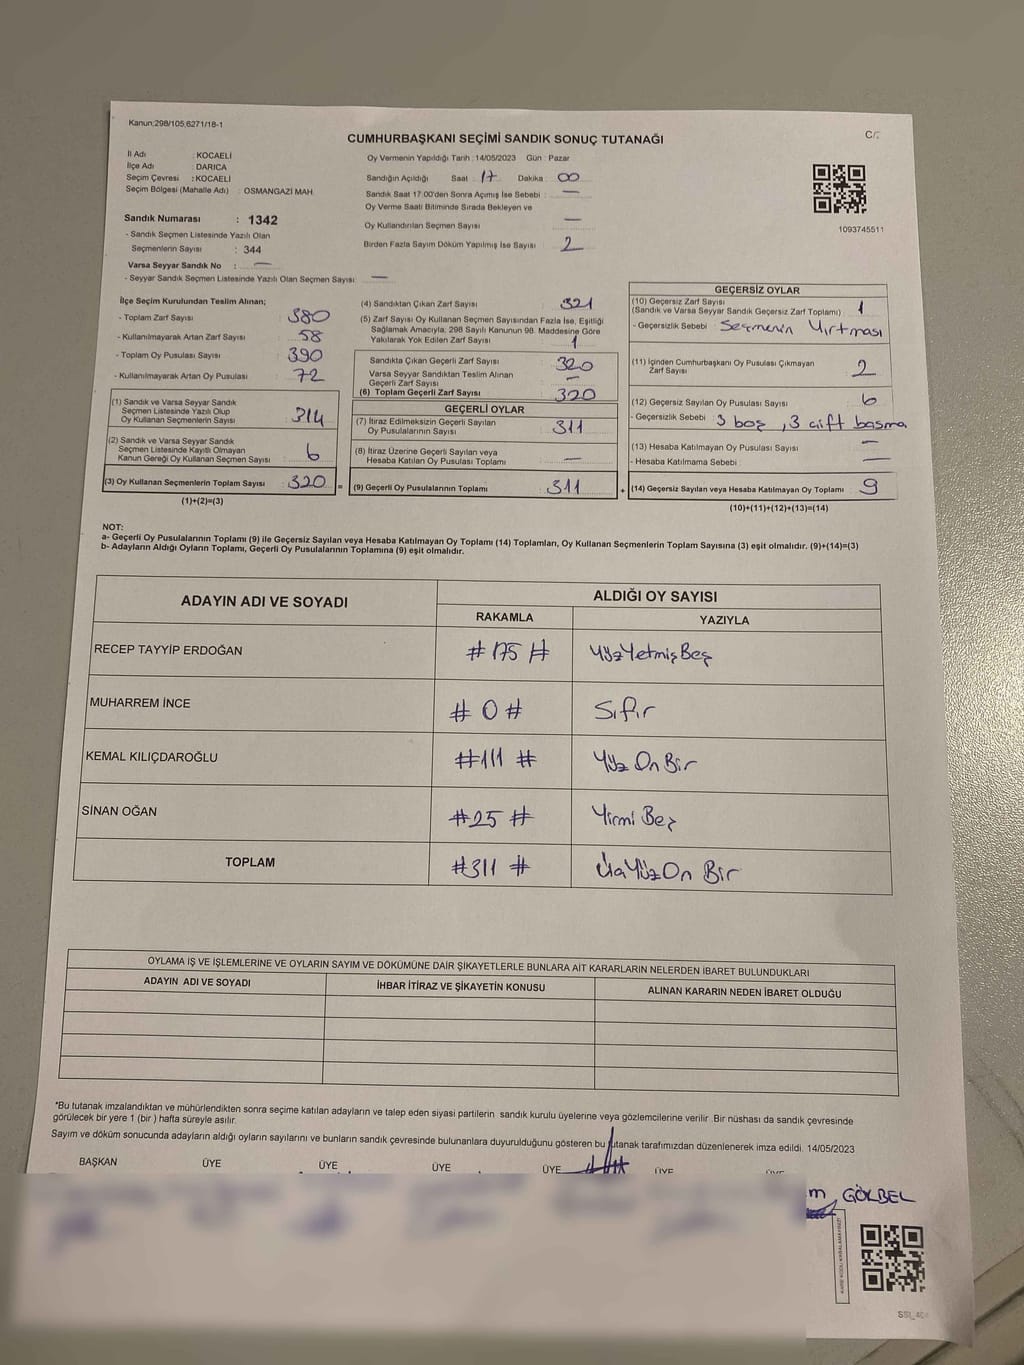 Kanun;298/105;6271/18-1
CUMHURBAŞKANI SEÇİMİ SANDIK SONUÇ TUTANAĞI
İl Adı : KOCAELİ
İlçe Adı : DARICA
Seçim Çevresi : KOCAELİ
Seçim Bölgesi (Mahalle Adı) : OSMANGAZİ MAH.
Sandık Numarası : 1342
- Sandık Seçmen Listesinde Yazılı Olan
Seçmenlerin Sayısı : 344
Varsa Seyyar Sandık No : —
- Seyyar Sandık Seçmen Listesinde Yazılı Olan Seçmen Sayısı : —
Oy Vermenin Yapıldığı Tarih : 14/05/2023 Gün : Pazar
Sandığın Açıldığı Saat : 17 Dakika : 00
Sandık Saat 17:00'den Sonra Açımış İse Sebebi : —
Oy Verme Saati Bitiminde Sırada Bekleyen ve
Oy Kullandırılan Seçmen Sayısı —
Birden Fazla Sayım Döküm Yapılmış İse Sayısı : 2
1093745511
İlçe Seçim Kurulundan Teslim Alınan;
- Toplam Zarf Sayısı : 380
- Kullanılmayarak Artan Zarf Sayısı : 58
- Toplam Oy Pusulası Sayısı : 390
- Kullanılmayarak Artan Oy Pusulası : 72
(1) Sandık ve Varsa Seyyar Sandık
Seçmen Listesinde Yazılı Olup
Oy Kullanan Seçmenlerin Sayısı : 314
(2) Sandık ve Varsa Seyyar Sandık
Seçmen Listesinde Kayıtlı Olmayan
Kanun Gereği Oy Kullanan Seçmen Sayısı : 6
(3) Oy Kullanan Seçmenlerin Toplam Sayısı : 320
(1)+(2)=(3)
(4) Sandıktan Çıkan Zarf Sayısı : 321
(5) Zarf Sayısı Oy Kullanan Seçmen Sayısından Fazla İse, Eşitliği
Sağlamak Amacıyla; 298 Sayılı Kanunun 98. Maddesine Göre
Yakılarak Yok Edilen Zarf Sayısı : 1
Sandıkta Çıkan Geçerli Zarf Sayısı : 320
Varsa Seyyar Sandıktan Teslim Alınan
Geçerli Zarf Sayısı : —
(6) Toplam Geçerli Zarf Sayısı : 320
GEÇERLİ OYLAR
(7) İtiraz Edilmeksizin Geçerli Sayılan
Oy Pusulalarının Sayısı : 311
(8) İtiraz Üzerine Geçerli Sayılan veya
Hesaba Katılan Oy Pusulası Toplamı : —
= (9) Geçerli Oy Pusulalarının Toplamı : 311
GEÇERSİZ OYLAR
(10) Geçersiz Zarf Sayısı
(Sandık ve Varsa Seyyar Sandık Geçersiz Zarf Toplamı) : 1
- Geçersizlik Sebebi : Seçmenin Yırtması
(11) İçinden Cumhurbaşkanı Oy Pusulası Çıkmayan
Zarf Sayısı : 2
(12) Geçersiz Sayılan Oy Pusulası Sayısı : 6
- Geçersizlik Sebebi : 3 boş , 3 çift basma
(13) Hesaba Katılmayan Oy Pusulası Sayısı : —
- Hesaba Katılmama Sebebi : —
+ (14) Geçersiz Sayılan veya Hesaba Katılmayan Oy Toplamı : 9
(10)+(11)+(12)+(13)=(14)
NOT:
a- Geçerli Oy Pusulalarının Toplamı (9) ile Geçersiz Sayılan veya Hesaba Katılmayan Oy Toplamı (14) Toplamları, Oy Kullanan Seçmenlerin Toplam Sayısına (3) eşit olmalıdır. (9)+(14)=(3)
b- Adayların Aldığı Oyların Toplamı, Geçerli Oy Pusulalarının Toplamına (9) eşit olmalıdır.
ADAYIN ADI VE SOYADI ALDIĞI OY SAYISI
RAKAMLA YAZIYLA
RECEP TAYYİP ERDOĞAN # 175 # YüzYetmişBeş
MUHARREM İNCE # 0 # Sıfır
KEMAL KILIÇDAROĞLU # 111 # Yüz On Bir
SİNAN OĞAN # 25 # Yirmi Beş
TOPLAM # 311 # ÜçYüzOn Bir
OYLAMA İŞ VE İŞLEMLERİNE VE OYLARIN SAYIM VE DÖKÜMÜNE DAİR ŞİKAYETLERLE BUNLARA AİT KARARLARIN NELERDEN İBARET BULUNDUKLARI
ADAYIN ADI VE SOYADI İHBAR İTİRAZ VE ŞİKAYETİN KONUSU ALINAN KARARIN NEDEN İBARET OLDUĞU
*Bu tutanak imzalandıktan ve mühürlendikten sonra seçime katılan adayların ve talep eden siyasi partilerin sandık kurulu üyelerine veya gözlemcilerine verilir. Bir nüshası da sandık çevresinde
görülecek bir yere 1 (bir ) hafta süreyle asılır.
Sayım ve döküm sonucunda adayların aldığı oyların sayılarını ve bunların sandık çevresinde bulunanlara duyurulduğunu gösteren bu tutanak tarafımızdan düzenlenerek imza edildi. 14/05/2023
BAŞKAN ÜYE ÜYE ÜYE ÜYE ÜYE
GÖLBEL